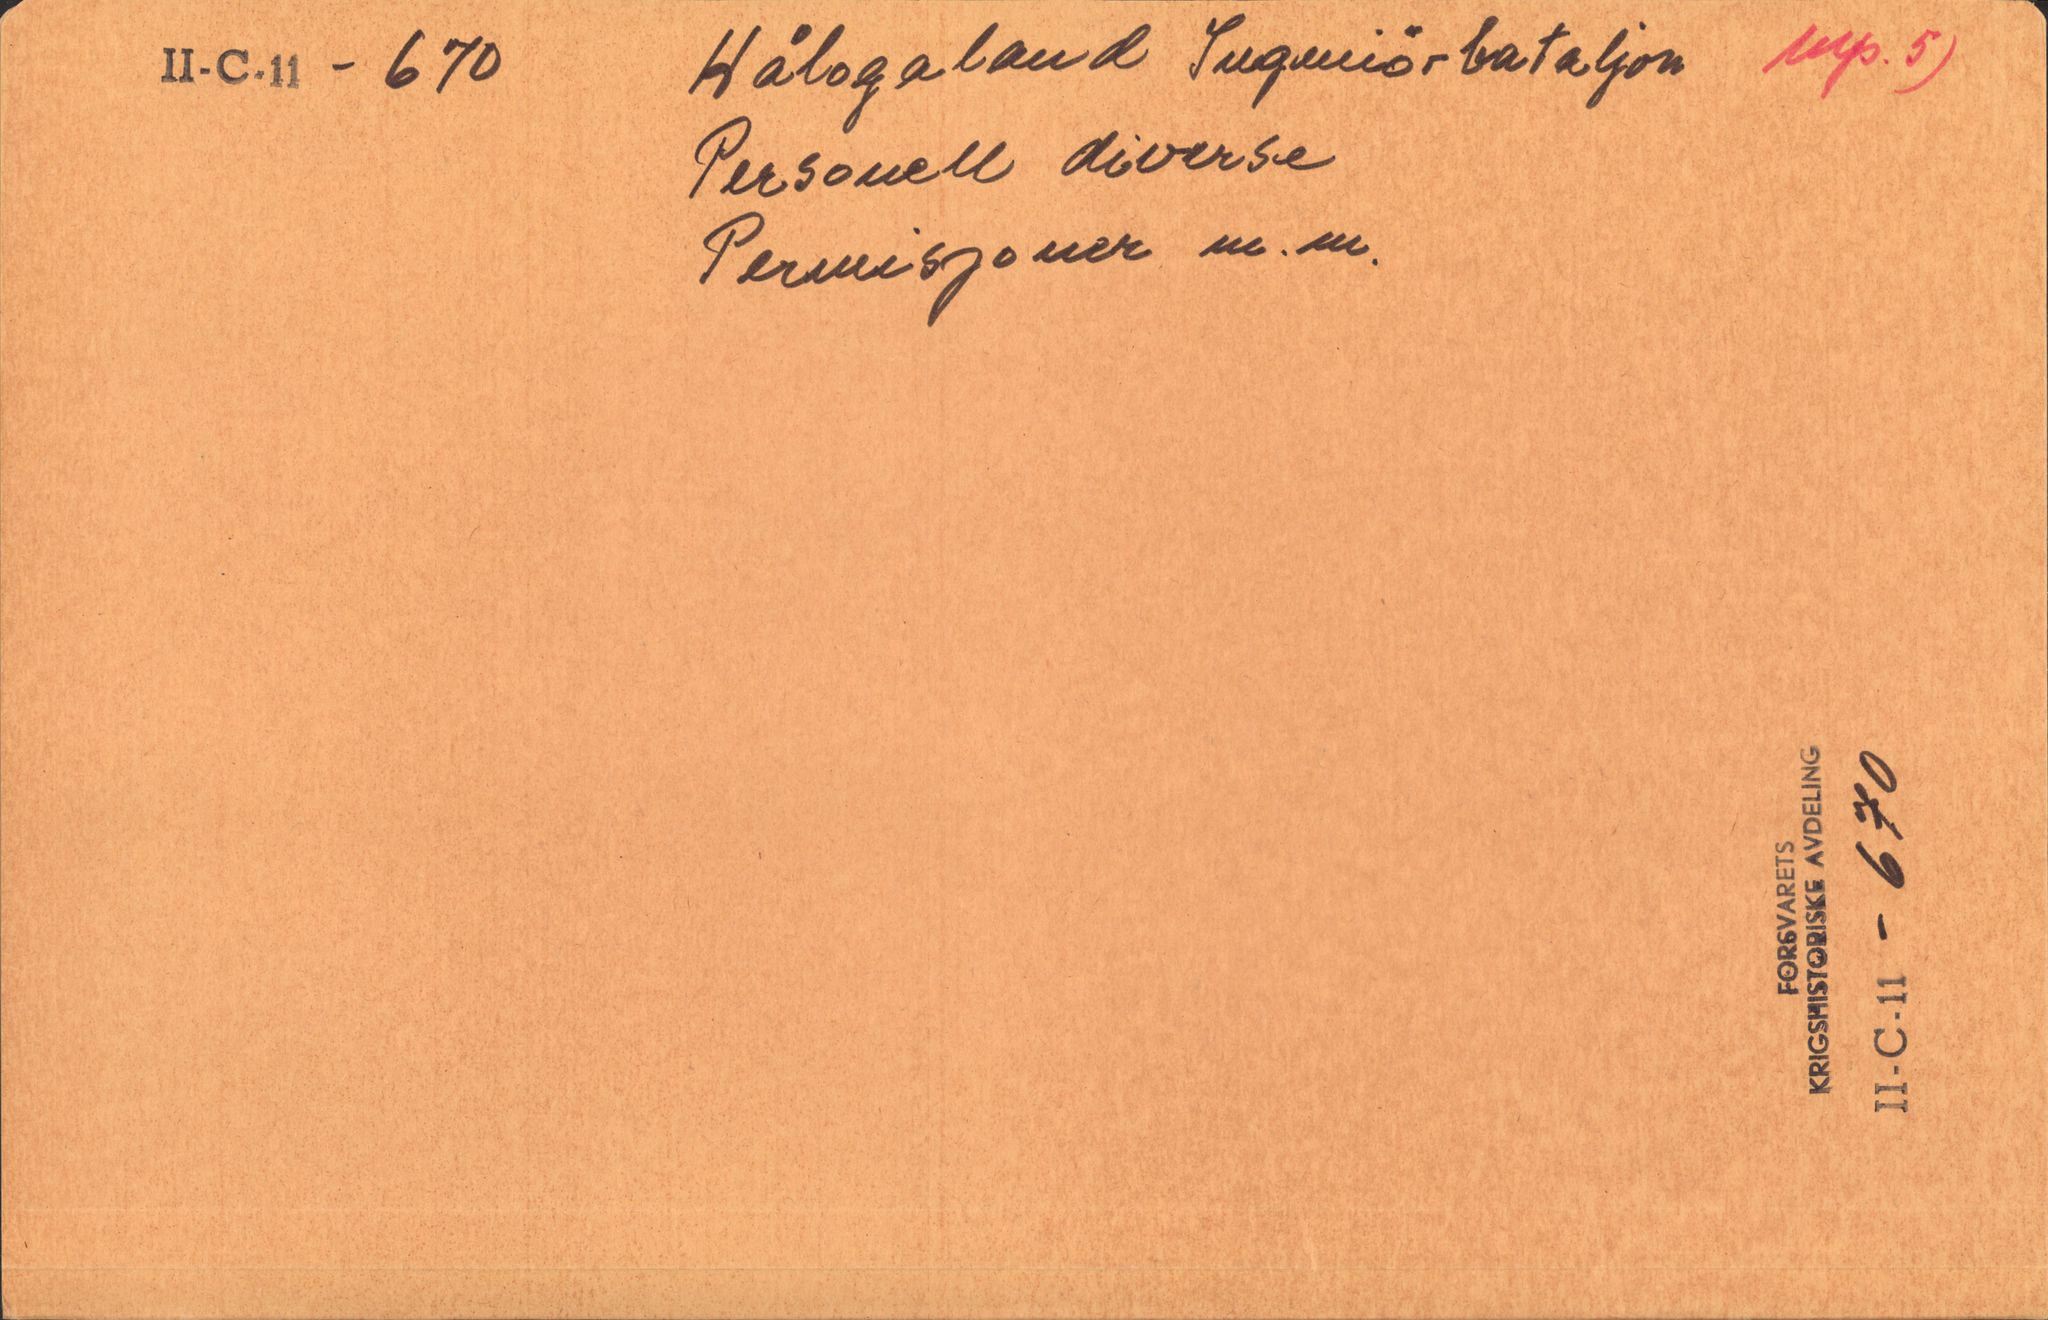 II-C-11 - 670 Hålogaland Ingeniörbataljon mp. 5)
Personell diverse
Permisjoner m.m.
FORSVARETS
KRIGSHISTORISKE AVDELING
II-C-11 - 670